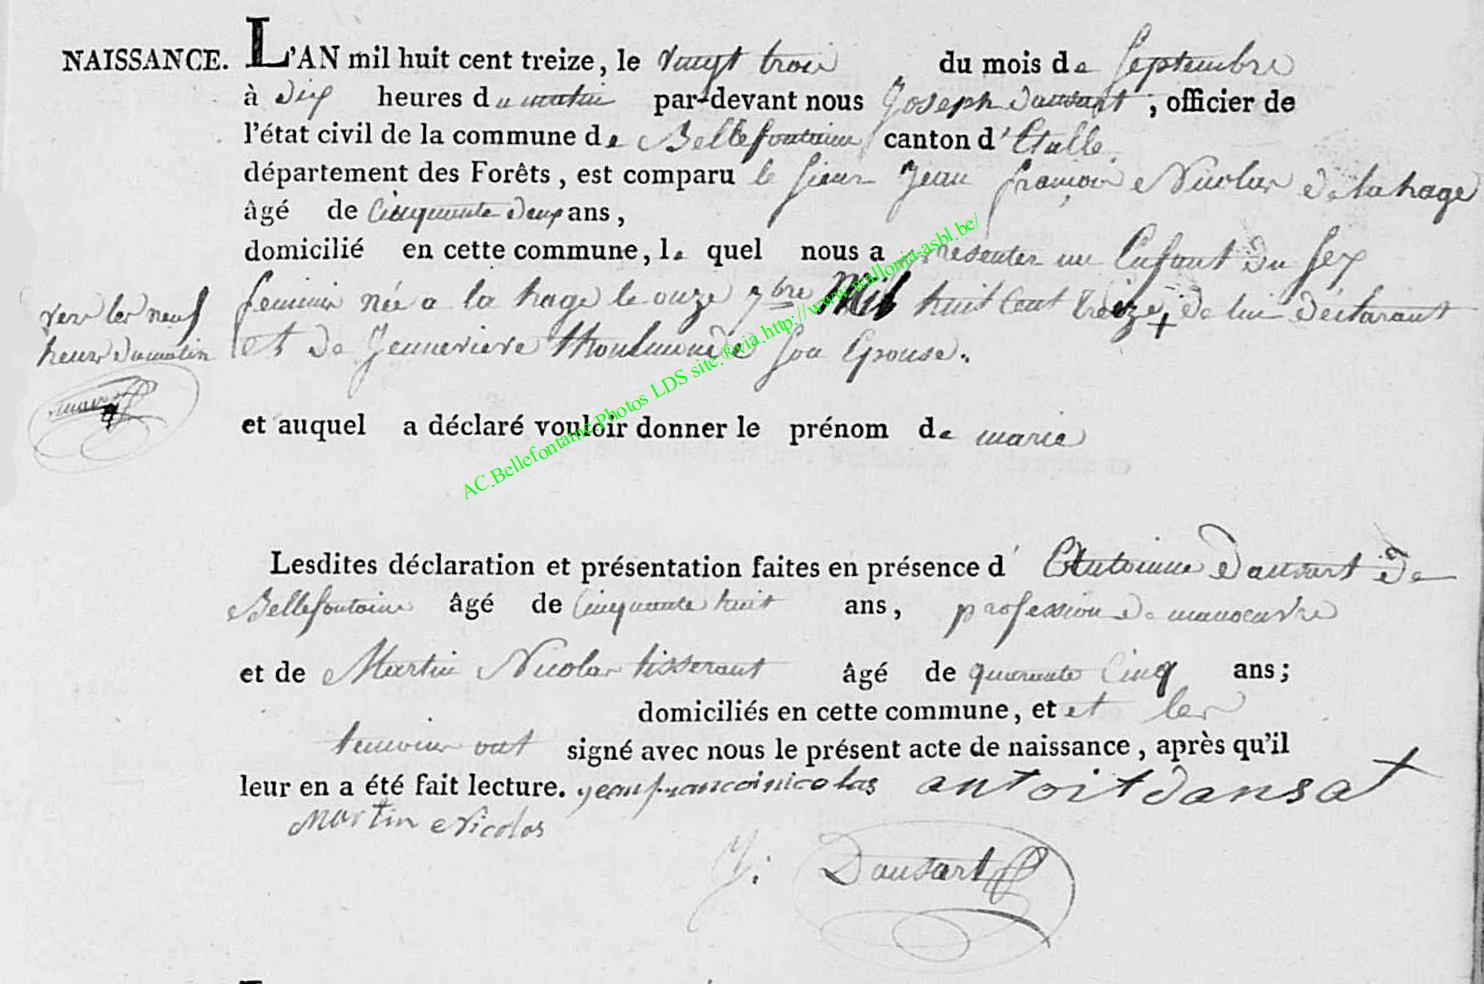 NAISSANCE. L'AN mil huit cent treize, le vingt trois du mois de Septembre
à dix heures du matin par-devant nous Joseph Dausart, officier de
l'état civil de la commune de Bellefontaine canton d'Etalle,
département des Forêts, est comparu le Sieur Jean françois Nicolas de la hage
âgé de Cinquante deux ans,
domicilié en cette commune, le quel nous a presenter un Enfant du Sex
feminin née a la hage le onze 7bre Mil huit Cent treize + de lui déclarant
et de Jenneviere Thoulmonde Son Epouse.
vers les neuf
heures du matin
et auquel a déclaré vouloir donner le prénom de marie
AC.Bellefontaine Photos LDS site: via http://www.wallonia-asbl.be/
Lesdites déclaration et présentation faites en présence d' Antoinne Dausart de
Bellefontaine âgé de Cinquante huit ans, profession de manoeuvre
et de Martin Nicolas tisserant âgé de quarante Cinq ans;
domiciliés en cette commune, et et les
temoins ont signé avec nous le présent acte de naissance, après qu'il
leur en a été fait lecture. jean francoi nicolas antoit dansat
Martin Nicolas
J: Dausart